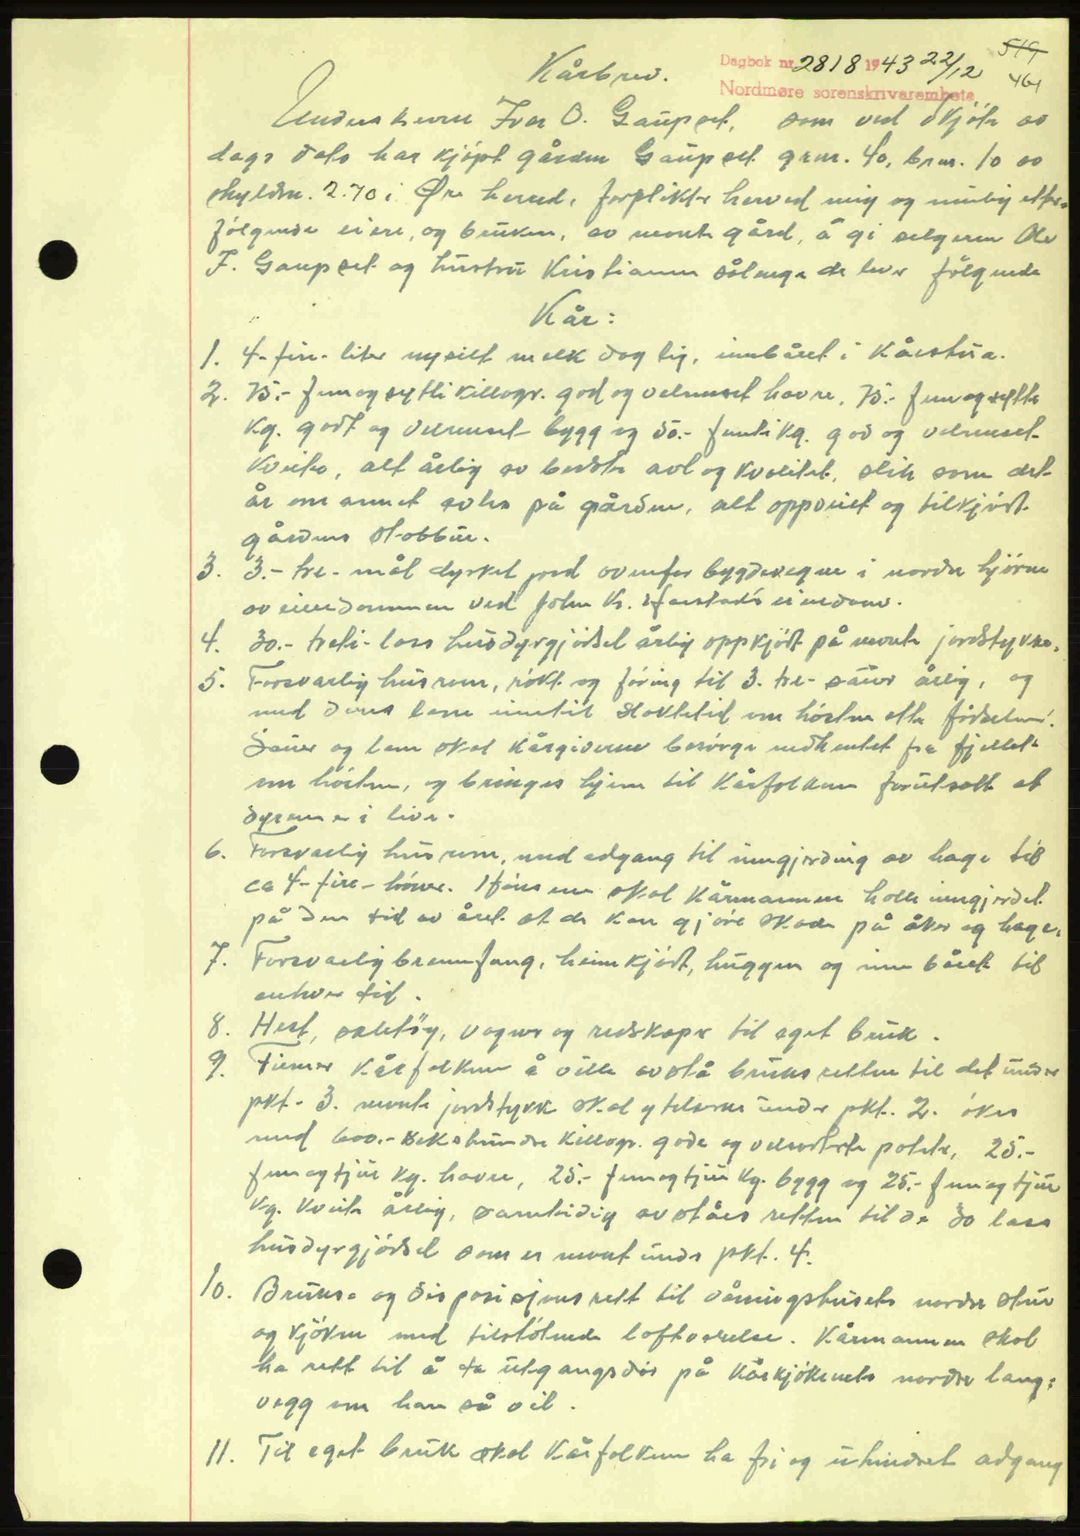 519
461
Dagbok nr. 2818 1943 22/12
Nordmøre sorenskriverembete
Kårbrev.
Undertegnede Ivar O. Gaupset, som ved skjöte av
dags dato har kjöpt gården Gaupset grnr. 40, brnr. 10 av
skyldm. 2.70 i Øre herred, forplikter herved mig og mulig efter-
fölgende eiere, og bruker, av nevnte gård, å gi selgeren Ole
I. Gaupset og hustru Kristianne sålenge de lever fölgende
Kår:
1. 4-fire- liter nysilt melk daglig, innbåret i Kårstua.
2. 75.- femogsytti killogr. god og velrenset havre, 75.- femogsytti
kg. godt og velrenset bygg og 50.- femti kg. god og velrenset
kveite, alt årlig av bedste avl og kvalitet, slik som det
år om annet avles på gården, alt oppveiet og tilkjört
gårdens stabbur.
3. 3.- tre- mål dyrket jord ovenfor bygdevegen i nordre hjörne
av eiendommen ved John K. Harstads eiendom.
4. 30.- treti- lass husdyrgjödsel årlig oppkjört på nevnte jordstykke.
5. Forsvarlig husrom, rökt og foring til 3. tre- sauer årlig, og
med deres lam inntil slaktetid om hösten efter födselen.
Sauer og lam skal kårgiveren besörge nedhentet fra fjellet
om hösten, og bringes hjem til Kårfolkene forutsatt at
dyrene er i live.
6. Forsvarlig husrom, med adgang til inngjerding av hage til
ca 4-fire- höner. Hönsene skal Kårmannen holde inngjerdet
på den tid av året at de kan gjöre skade på åker og hage.
7. Forsvarlig brennfang, heimkjört, huggen og innbåret til
enhver tid.
8. Hest, seletöy, vogner og redskaper til eget bruk.
9. Finner Kårfolkene å ville avstå bruksretten til det under
pkt. 3. nevnte jordstykke skal ytelserne under pkt. 2. ökes
med 600.- sekshundre killogr. gode og velsorterte poteter, 25.-
femogtjue kg. havre, 25.- femogtjue kg. bygg og 25.- femogtjue
kg. kveite årlig, samtidig avståes retten til de 30 lass
husdyrgjödsel som er nevnt under pkt. 4.
10. Bruks- og disposisjonsrett til våningshusets nordre stue
og kjöken med tilstötende loftverelse. Kårmannen skal
ha rett til å ta utgangsdör på Kårkjökenets nordre lang-
vegg om han så vil.
11. Til eget bruk skal Kårfolkene ha fri og uhindret adgang